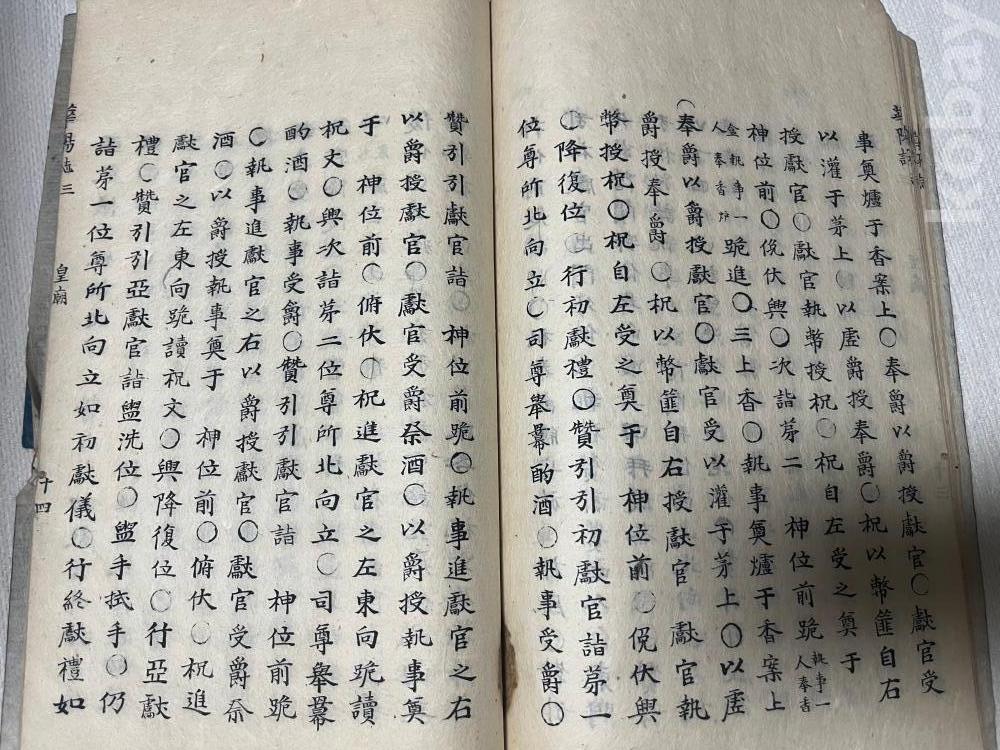 華陽誌
事奠爐于香案上〇奉爵以爵授獻官〇獻官受
以灌于茅上〇以虛爵授奉爵〇祝以幣篚自右
授獻官〇獻官執幣授祝〇祝自左受之奠于
神位前〇俛伏興〇次詣苐二 神位前跪執事一人奉香
盒執事一人奉香炉跪進〇三上香〇執事奠爐于香案上
〇奉爵以爵授獻官〇獻官受以灌于茅上〇以虛
爵授奉爵〇祝以幣篚自右授獻官獻官執
幣授祝〇祝自左受之奠于 神位前〇俛伏興
〇降復位〇行初獻禮〇贊引引初獻官詣苐一
位尊所北向立〇司尊舉冪酌酒〇執事受爵〇
贊引引獻官詣〇神位前跪〇執事進獻官之右
以爵授獻官〇獻官受爵祭酒〇以爵授執事奠
于 神位前〇俯伏〇祝進獻官之左東向跪讀
祝文〇興次詣苐二位尊所北向立〇司尊舉冪
酌酒〇執事受爵〇贊引引獻官詣 神位前跪
〇執事進獻官之右以爵授獻官〇獻官受爵祭
酒〇以爵授執事奠于 神位前〇俯伏〇祝進
獻官之左東向跪讀祝文〇興降復位〇行亞獻
禮〇贊引引亞獻官詣盥洗位〇盥手拭手〇仍
詣苐一位尊所北向立如初獻儀〇行終獻禮如
華陽誌三 皇廟 十四